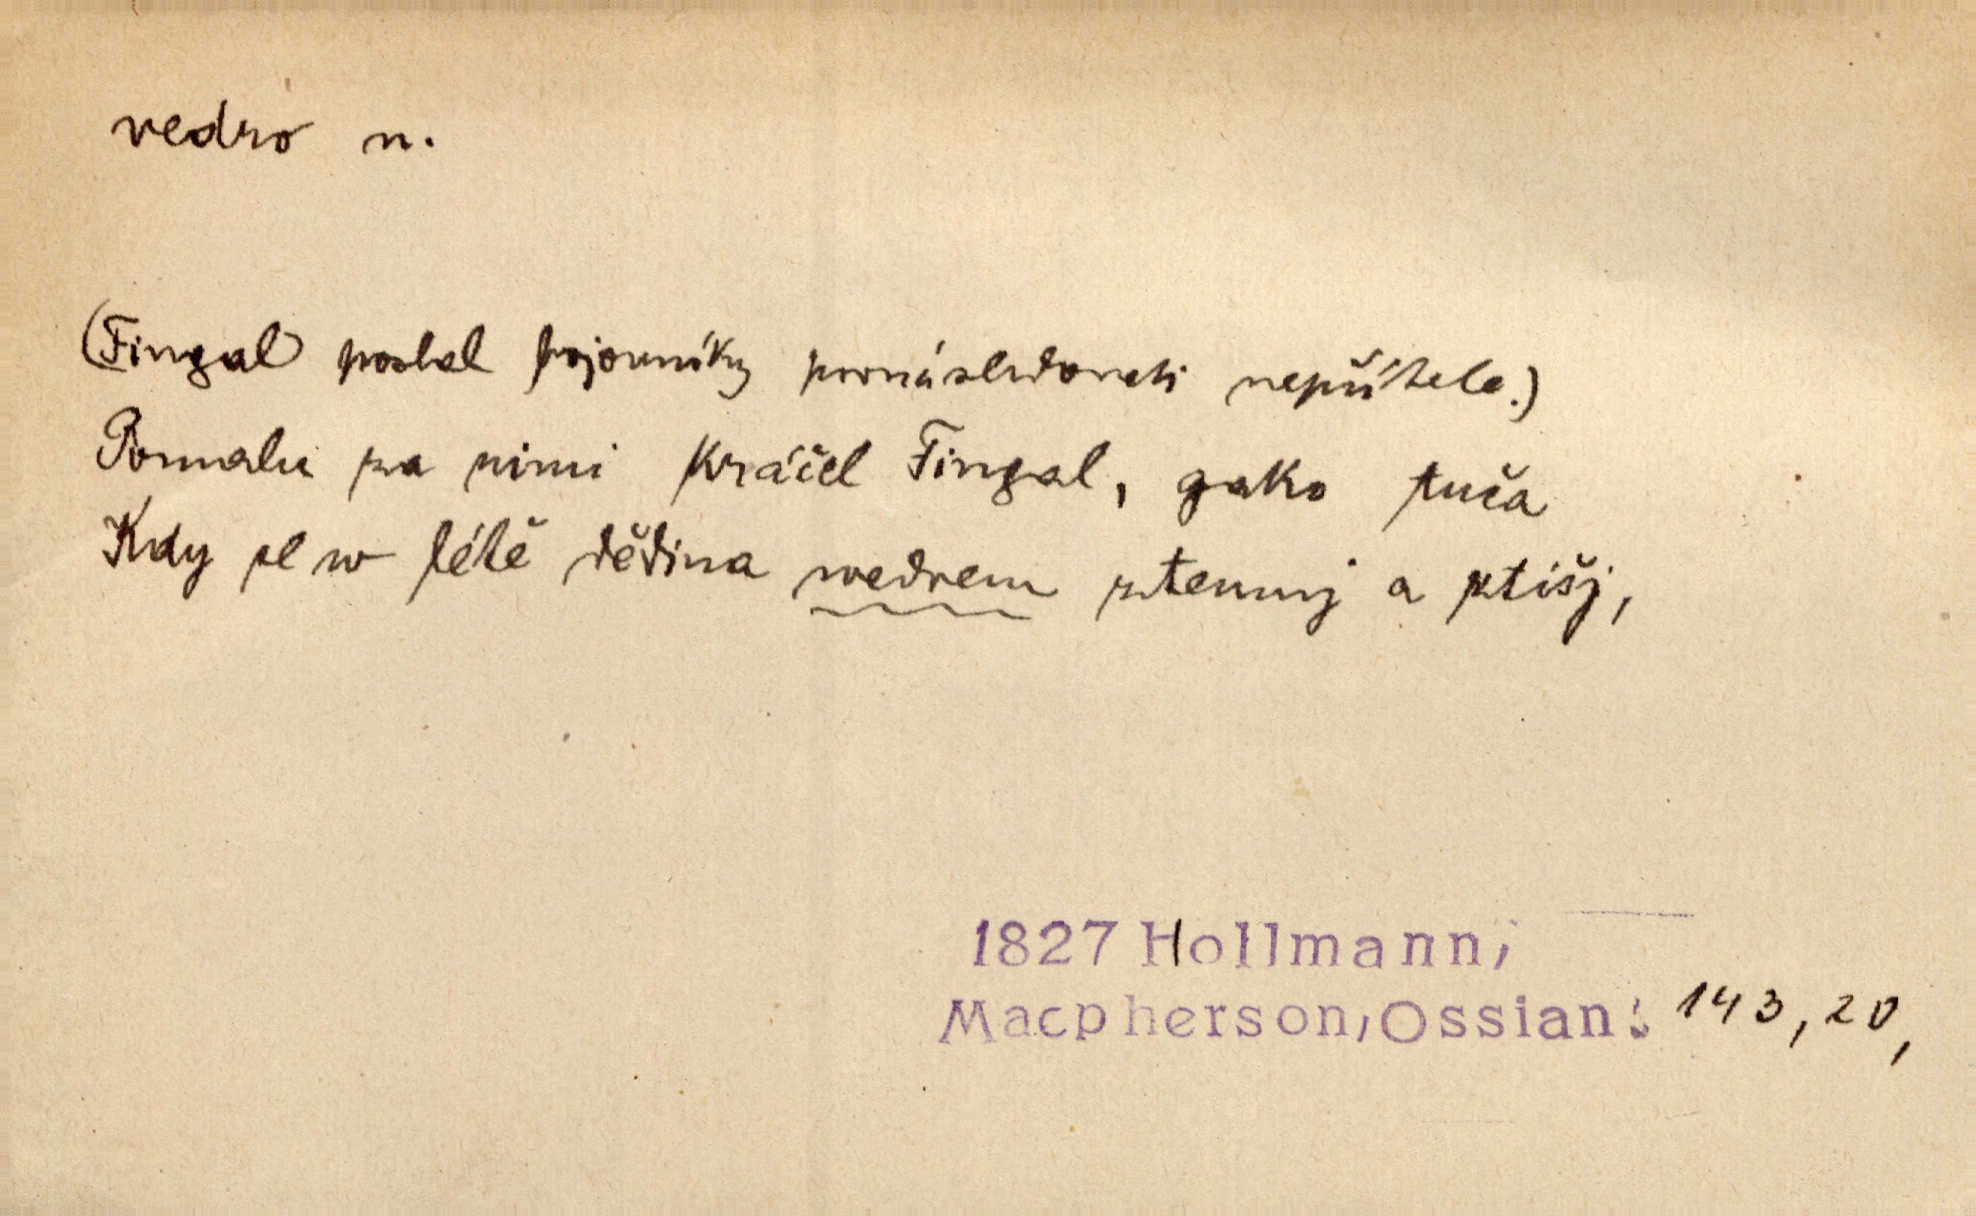 vedro n.
(Fingal poslal bojovníky pronásledovati nepřítele.)
Pomalu za nimi kráčel Fingal, gako tuča
Kdy se w létě dědina wedrem ztemnj a ztišj,
1827 Hollmann,
Macpherson, Ossian: 143, 20,